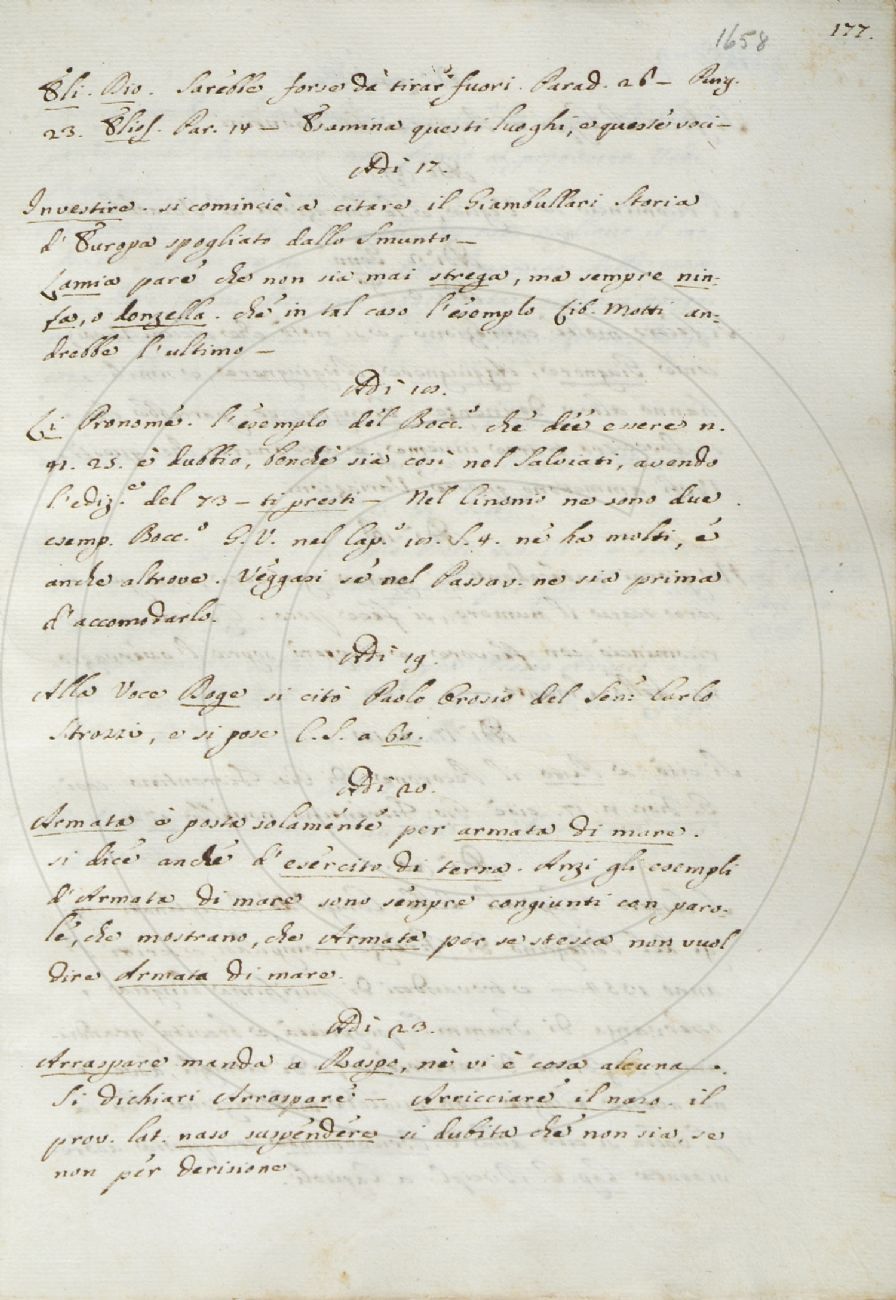 1658 177.
Eli. Dio. Sarebbe forse da tirar fuori. Parad. 26 — Purg.
23. Elios. Par. 14 — Esamina questi luoghi, e queste voci —
Adi 17.
Investire. si cominciò a citare il Giambullari Storia
d'Europa spogliato dallo Smunto —
Lamia pare che non sia mai strega, ma sempre nin-
fa, o donzella. che in tal caso l'esempio Lib. Motti an-
drebbe l'ultimo —
Adi 18.
Li Pronome. l'esempio del Bocc.º che dee essere n.
91. 23. è dubbio, benchè sia così nel Salviati, avendo
l'ediz.º del 73 — ti presti — Nel Cinonio ne sono due
esemp. Bocc.º G. V. nel Cap.º 10. S. 4. nè ha molti, é
anche altrove. Veggasi se nel Passav. ne sia prima
d'accomodarlo.
Adi 19.
Alla Voce Boge si citò Paolo Orosio del Sen: Carlo
Strozzi, e si pose C. S. a 60.
Adi 20.
Armata è posta solamente per armata di mare.
si dice anche d'esercito di terra. Anzi gli esempli
d'Armata di mare sono sempre congiunti con paro-
le, che mostrano, che Armata per se stessa non vuol
dire Armata di mare.
Adi 23.
Arraspare manda a Raspe, nè vi è cosa alcuna.
Si dichiari Arraspare — Arricciare il naso. il
prov. lat. naso suspendere si dubita che non sia, se
non per derisione